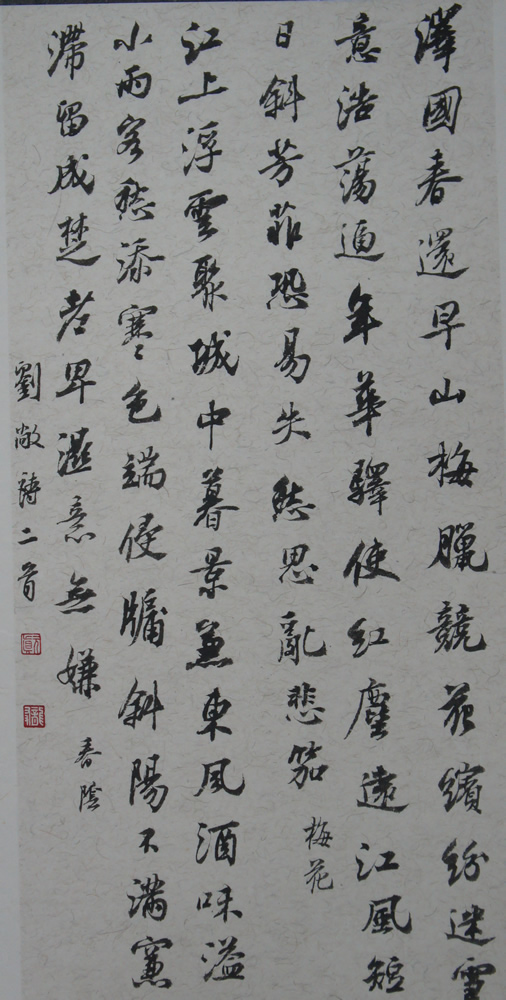 澤國春還早山梅臘競花繽紛迷雪
意浩蕩逼年華驛使紅塵遠江風短
日斜芳菲恐易失愁思亂悲笳
梅花
江上浮雲聚城中暮景兼東風酒味溢
小雨客愁添寒色端侵牖斜陽不滿簾
滯留成楚老卑濕意無嫌
春陰
劉敞詩二首